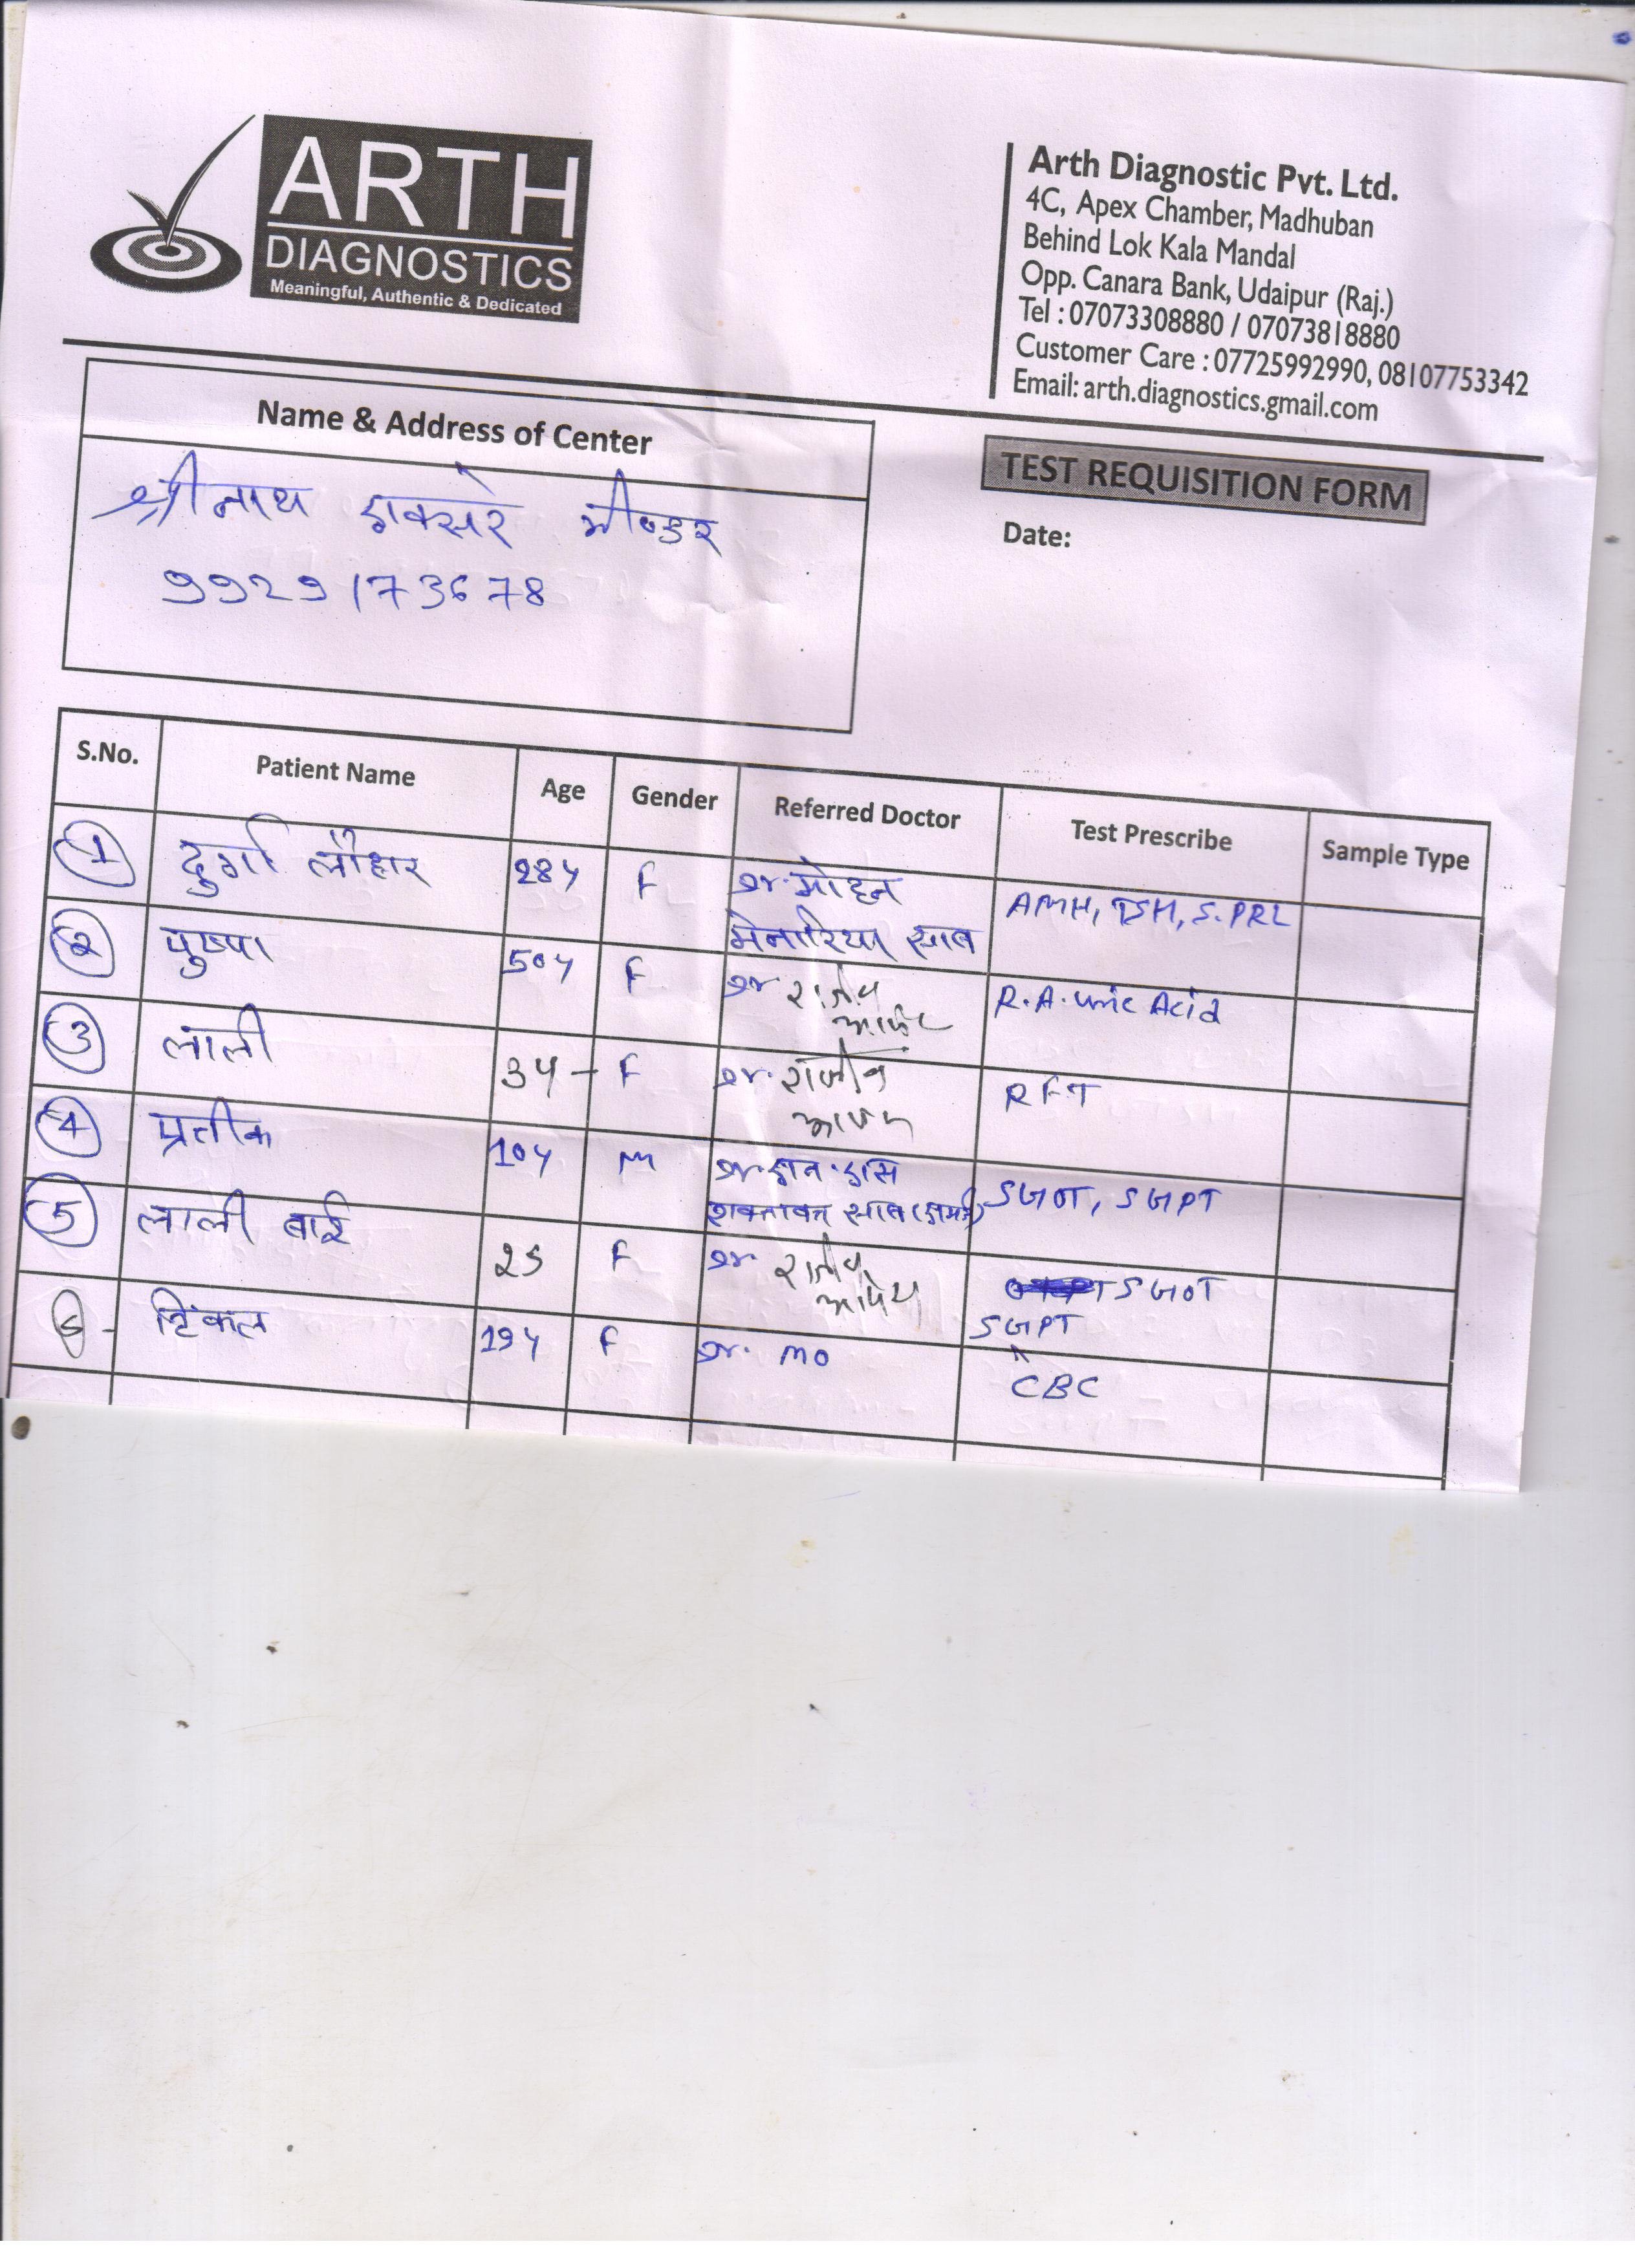 ARTH
DIAGNOSTICS
Meaningful, Authentic & Dedicated
Arth Diagnostic Pvt. Ltd.
4C, Apex Chamber, Madhuban
Behind Lok Kala Mandal
Opp. Canara Bank, Udaipur (Raj.)
Tel : 07073308880 / 07073818880
Customer Care : 07725992990, 08107753342
Email: arth.diagnostics.gmail.com
Name & Address of Center
TEST REQUISITION FORM
Date:
श्रीनाथ भीण्डर
9929173678
S.No. Patient Name Age Gender Referred Doctor Test Prescribe Sample Type
1 दुर्गा लौहार 28y F डॉ. मोहन AMH, TSH, S.PRL
मेनारिया साब
2 पुष्पा 50y F डॉ राजीव R.A. uric Acid
3 लाली F डॉ. राजीव RFT
4 प्रतीक 10y M SGOT, SGPT
शक्तावत साब
5 लाली बाई 25 F डॉ राजीव SGOT
SGPT
6 टिंकल 19y F डॉ. MO CBC